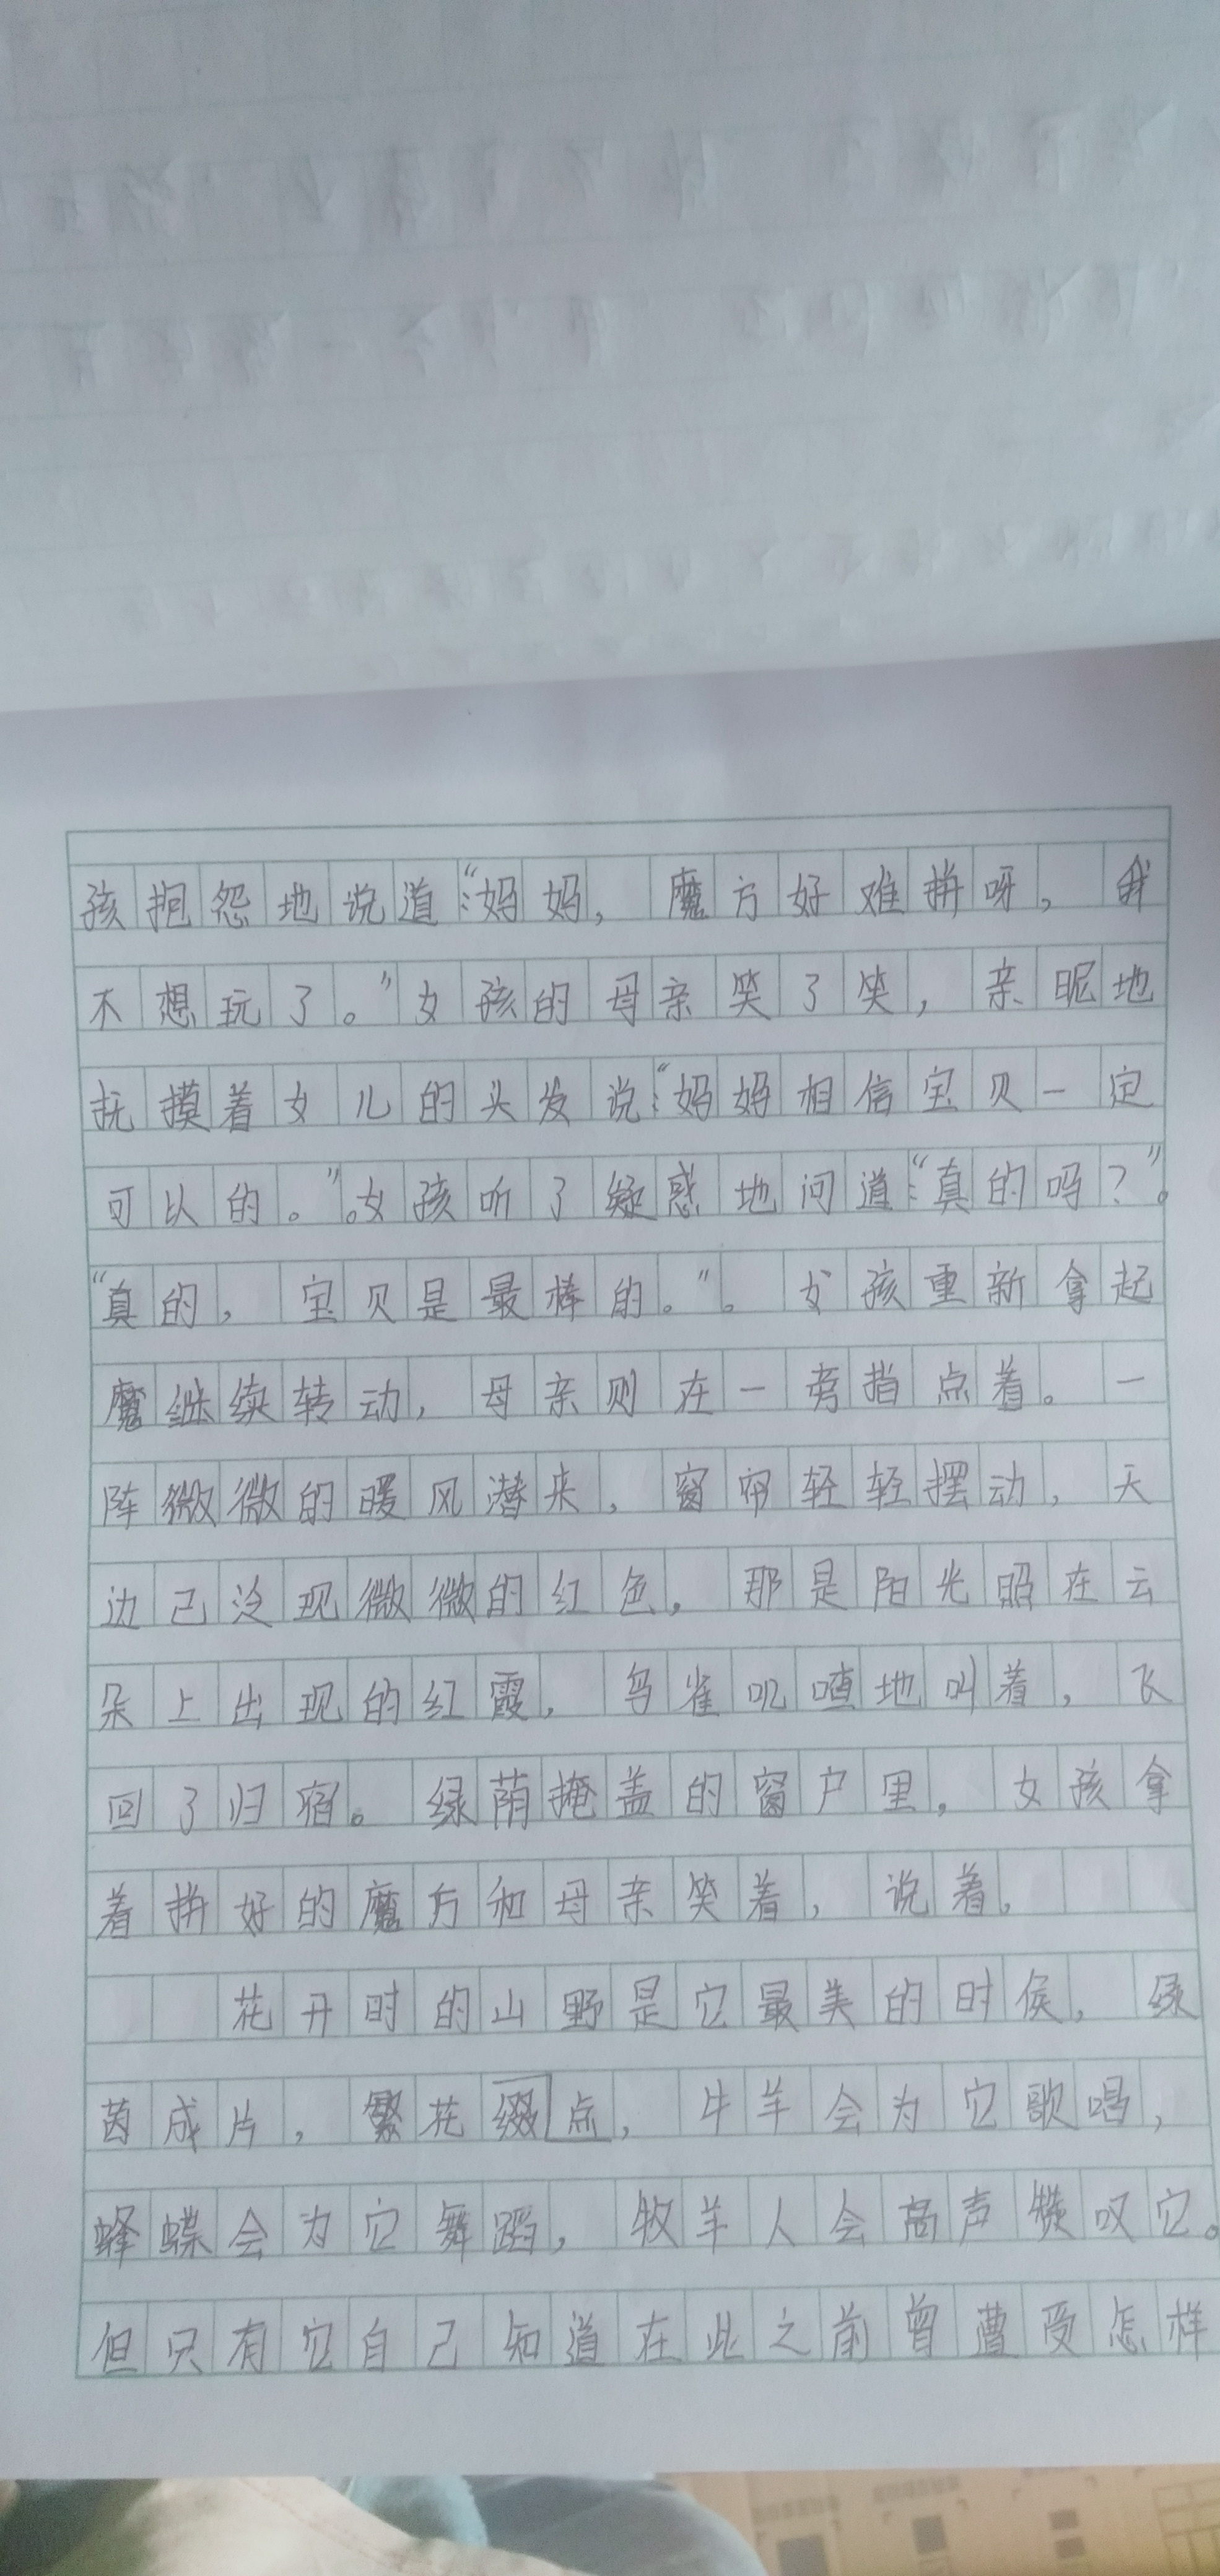 孩抱怨地说道:“妈妈，魔方好难拼呀，我
不想玩了。”女孩的母亲笑了笑，亲昵地
抚摸着女儿的头发说:“妈妈相信宝贝一定
可以的。”。女孩听了疑惑地问道:“真的吗？”。
“真的，宝贝是最棒的。”。女孩重新拿起
魔继续转动，母亲则在一旁指点着。一
阵微微的暖风潜来，窗帘轻轻摆动，天
边已泛现微微的红色，那是阳光照在云
朵上出现的红霞，鸟雀叽喳地叫着，飞
回了归宿。绿荫掩盖的窗户里，女孩拿
着拼好的魔方和母亲笑着，说着。
花开时的山野是它最美的时候，绿
茵成片，繁花缀点，牛羊会为它歌唱，
蜂蝶会为它舞蹈，牧羊人会高声赞叹它。
但只有它自己知道在此之前曾遭受怎样